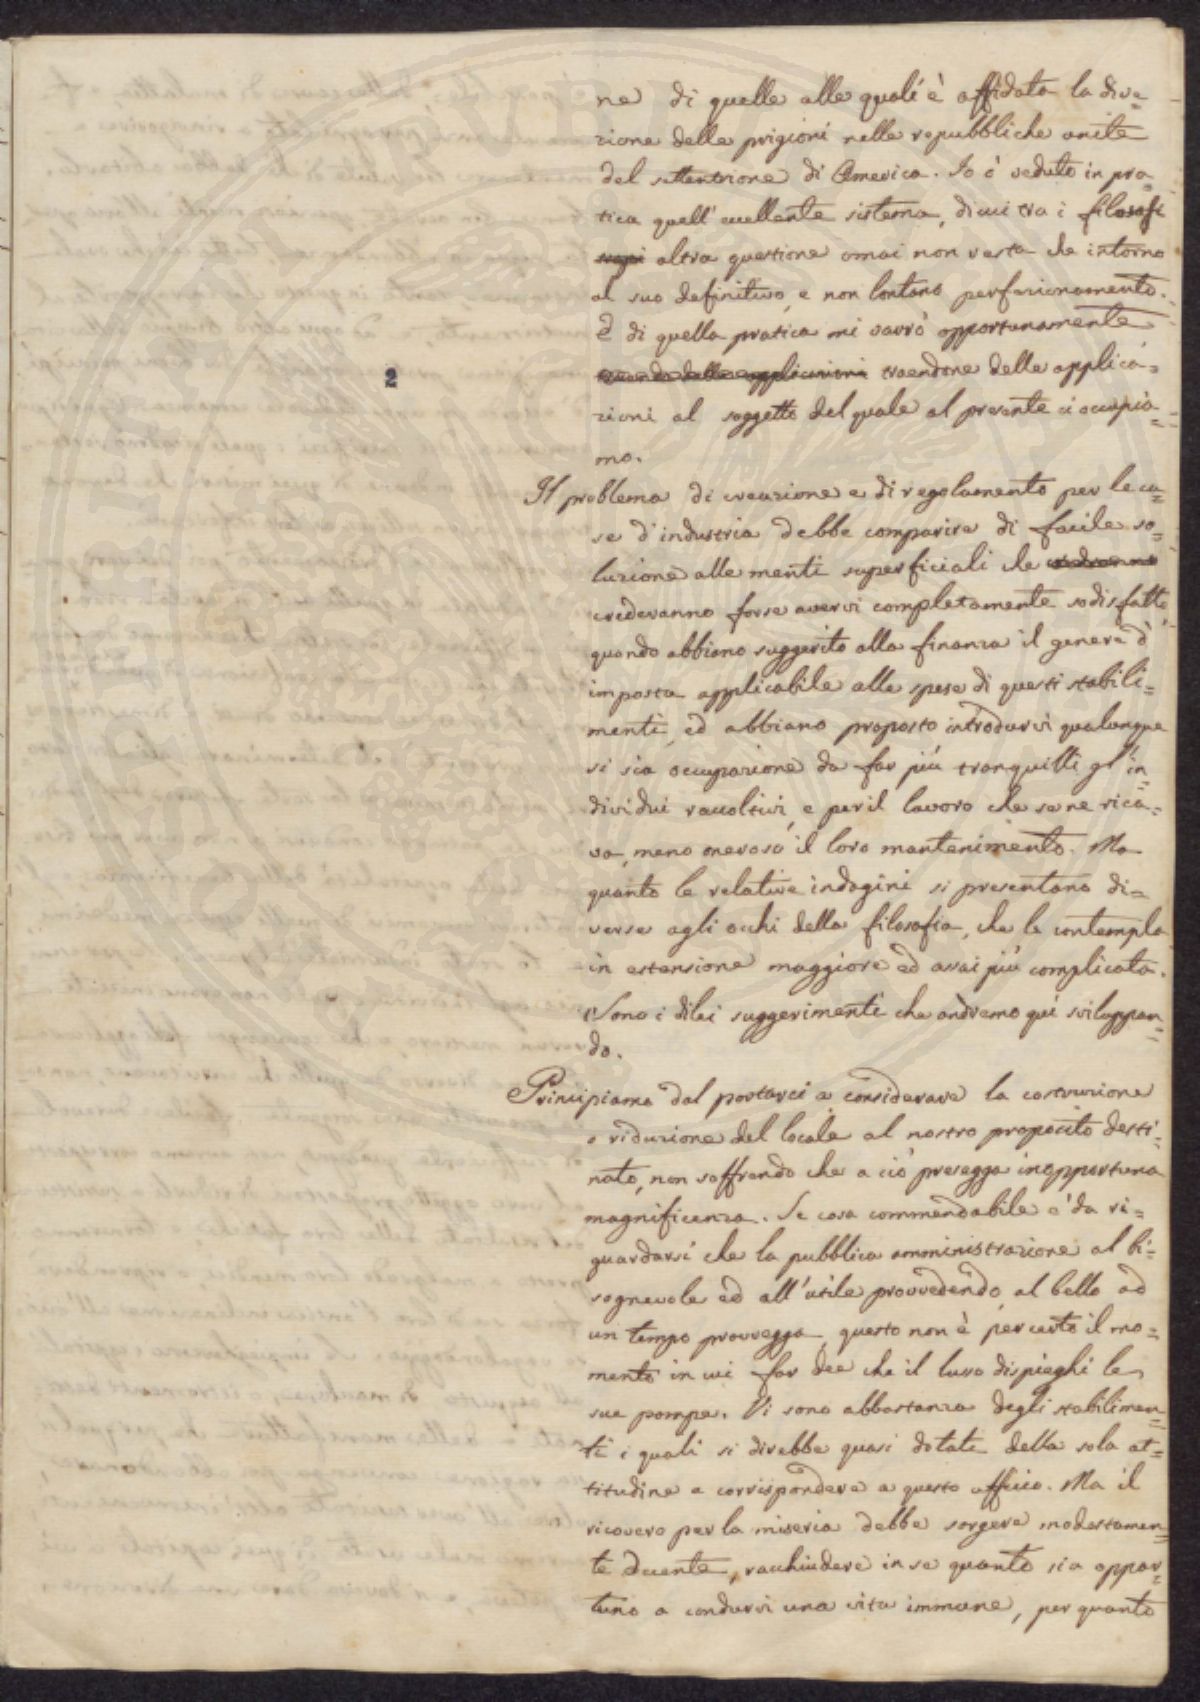 ne di quelle alle quali è affidata la dire=
zione delle prigioni nelle repubbliche unite
del settentrione di America. Io ò veduto in pra=
tica quell'eccellente sistema, di cui tra i filosofi
altra questione omai non resta che intorno
al suo definitivo, e non lontano perfezionamento.
E di quella pratica mi varrò opportunamente
traendone delle applica=
zioni al soggetto del quale al presente ci occupia=
mo.
Il problema di creazione e di regolamento per le ca=
se d'industria debbe comparire di facile so=
luzione alle menti superficiali che
crederanno forse avervi completamente sodisfatto,
quando abbiano suggerito alla finanza il genere d'
imposta applicabile alle spese di questi stabili=
menti, ed abbiano proposto introdurvisi qualunque
si sia occupazione da far più tranquilli gl'in=
dividui raccoltivi, e per il lavoro che se ne rica=
va, meno oneroso il loro mantenimento. Ma
quanto le relative indagini si presentano di=
verse agli occhi della filosofia, che le contempla
in estensione maggiore ed assai più complicata.
Sono i di lei suggerimenti che andremo quì sviluppan=
do.
Principiamo dal portarci a considerare la costruzione
o riduzione del locale al nostro proposito desti=
nato, non soffrendo che a ciò presegga inopportuna
magnificenza. Se cosa commendabile è da ri=
guardarsi che la pubblica amministrazione al bi=
sognevole ed all'utile provvedendo, al bello ad
un tempo provvegga, questo non è per certo il mo=
mento in cui far dee che il lusso dispieghi le
sue pompe. Vi sono abbastanza degli stabilimen=
ti i quali si direbbe quasi dotati della sola at=
titudine a corrispondere a questo ufficio. Ma il
ricovero per la miseria debbe sorgere modestamen=
te decente, racchiudere in se quanto sia oppor=
tuno a condurvi una vita immune, per quanto
2